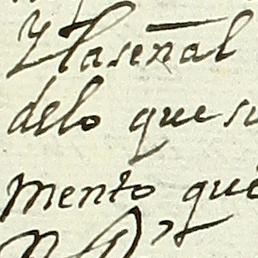 Y la señal
delo que su
mento que